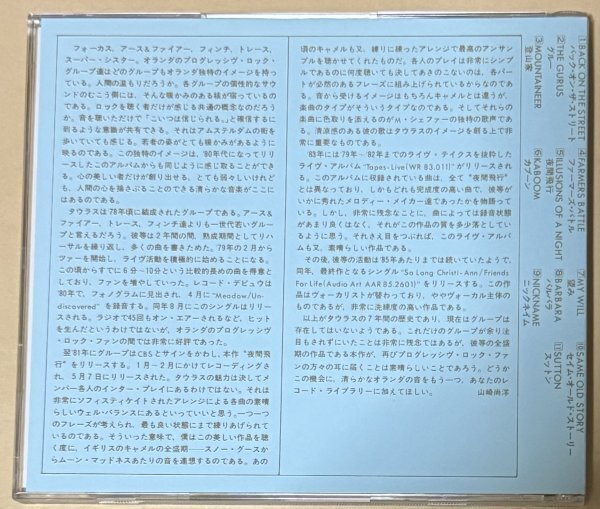 フォーカス、アース&ファイアー、フィンチ、トレース、
スーパー・シスター。オランダのプログレッシヴ・ロック・
グループ達はどのグループもオランダ独特のイメージを持っ
ている。人間の温もりだろうか。各グループの個性的なサウ
ンドのむこう側は、そんな暖かみのある核が宿っているので
ある。ロックを聴く者だけが感じる共通の概念なのだろう
か。音を聴いただけで「こいつは信じられる。」と確信するに
到るような意識が共有できる。それはアムステルダムの街を
歩いていても感じる。若者の姿がとても暖かみがあるように
映るのである。この独特のイメージは、'80年代になってリリー
スしたこのアルバムからも同じように感じ取ることができ
る。心の美しい者だけが創り出せる、とても弱々しいけれど
も、人間の心を揺さぶることのできる清らかな音楽がここに
はあるのである。
タウラスは78年頃に結成されたグループである。アース&
ファイアー、トレース、フィンチ達よりも一世代若いグルー
プと言えるだろう。彼等は2年間の間、熟成期間としてリハ
ーサルを繰り返し、多くの曲を書きためた。79年の2月から
ツアーを開始し、ライヴ活動を積極的に始めることになる。
この頃からすでに6分~10分という比較的長めの曲を得意と
しており、ファンを増やしていった。レコード・デビュウは
'80年で、フォノグラムに見出され、4月に"Meadow/Un-
discovered"を録音する。同年8月にこのシングルはリリース
される。ラジオで45回もオン・エアーされるなど、ヒット
を生んだというわけではないが、オランダのプログレッシヴ・
ロック・ファンの間では非常に好評であった。
翌81年にグループはCBSとサインをかわし、本作"夜間飛
行"をリリースする。1月~2月にかけてレコーディングさ
れ、5月7日にリリースされた。タウラスの魅力は決してメ
ンバー各人のインター・プレイにあるわけではない。それは
非常にソフィスティケイトされたアレンジによる各曲の素晴
らしいウェル・バランスにあるといっていいと思う。一つ一つ
のフレーズが考えられ、最も良い状態にまで練りあげられて
いるのである。そういった意味で、僕はこの美しい作品を聴
く度に、イギリスのキャメルの全盛期──スノー・グースか
らムーン・マッドネスあたりの音を連想するのである。あの
頃のキャメルも又、練りに練ったアレンジで最高のアンサン
ブルを聴かせてくれたものだ。各人のプレイは非常にシンプ
ルであるのに何度聴いても決してあきのこないのは、各パー
トが必然のあるフレーズに組み上げられているからなのであ
る。音から受けるイメージはもちろんキャメルとは違うが、
楽曲のタイプがそういうタイプなのである。そしてそれらの
楽曲に色取りを添えるのがM・シェファーの独特の歌声であ
る。清涼感のある彼の歌はタウラスのイメージを創る上で非
常に重要なものである。
83年には79年~82年までのライヴ・テイクスを抜粋した
ライヴ・アルバム"Tapes-Live(WR 83.011)"がリリースされ
る。このアルバムに収録されている曲は、全て"夜間飛行"
とは異なっており、しかもどれも完成度の高い曲で、彼等が
いかに秀れたメロディー・メイカー達であったかを物語って
いる。しかし、非常に残念なことに、曲によっては録音状態
があまり良くはなく、それがこの作品の質を多少落としてい
るように思う。それさえ目をつぶれば、このライヴ・アルバ
ムも又、素晴らしい作品である。
その後、彼等の活動は'85年あたりまで続けていたようで、
同年、最終作となるシングル"So Long Christi-Ann/Friends
For Life(Audio Art AAR 85.2601)"をリリースする。この作
品はヴォーカリストが替わっており、ややヴォーカル主体の
ものであるが、非常に洗練度の高い作品である。
以上がタウラスの7年間の歴史であり、現在はグループは
存在してはいないようである。これだけのグループが余り注
目もされずにいたことは非常に残念ではあるが、彼等の全盛
期の作品である本作が、再びプログレッシヴ・ロック・ファン
の方々の耳に届くことは素晴らしいことであろう。どうか
この機会に、清らかなオランダの音をもう一つ、あなたのレ
コード・ライブラリーに加えてほしい。
山崎尚洋
①BACK ON THE STREET
バック・オン・ザ・ストリート
②THE GURUS
グルー
③MOUNTAINEER
登山家
④FARMERS BATTLE
ファーマーズ・バトル
⑤ILLUSIONS OF A NIGHT
夜間飛行
⑥KABOOM
カブーン
⑦MY WILL
望み
⑧BARBARA
バルバラ
⑨NICKNAME
ニックネイム
⑩SAME OLD STORY
セイム・オールド・ストーリー
⑪SUTTON
スットン